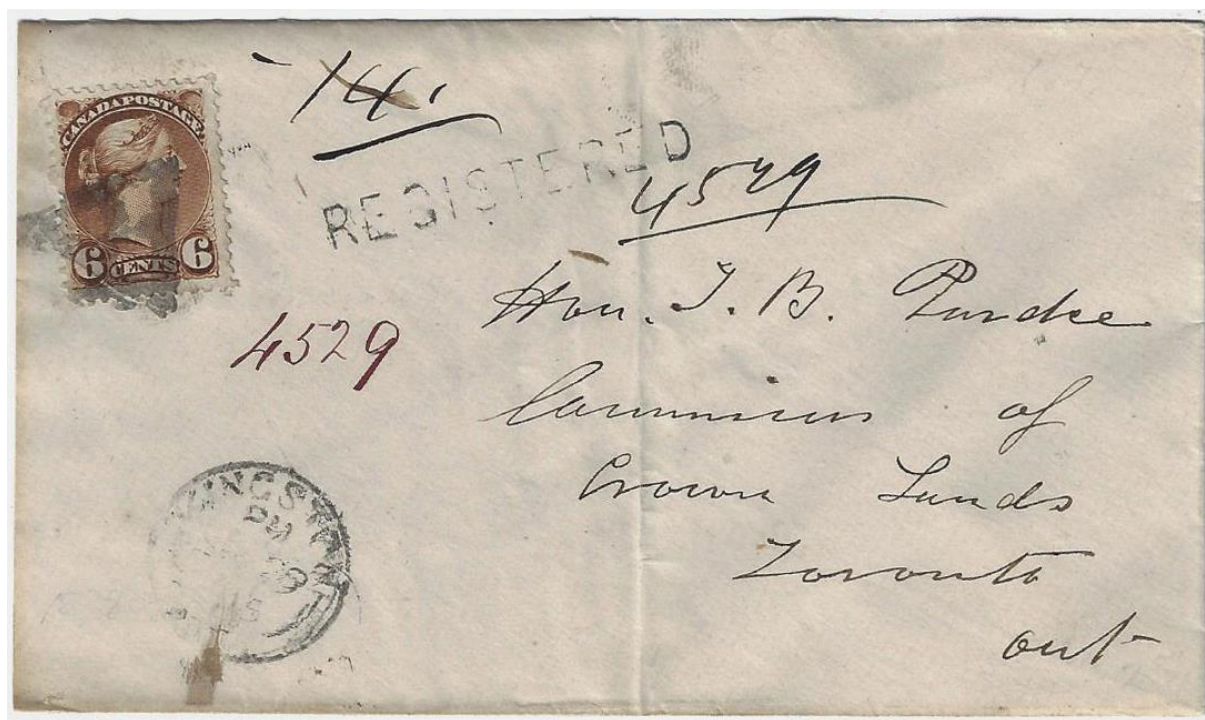 CANADA POSTAGE
6 CENTS 6
14.
REGISTERED
4529
4529
Hon. T. B. Pardee
of
Crown Lands
Toronto
Ont
KINGSTON
PM